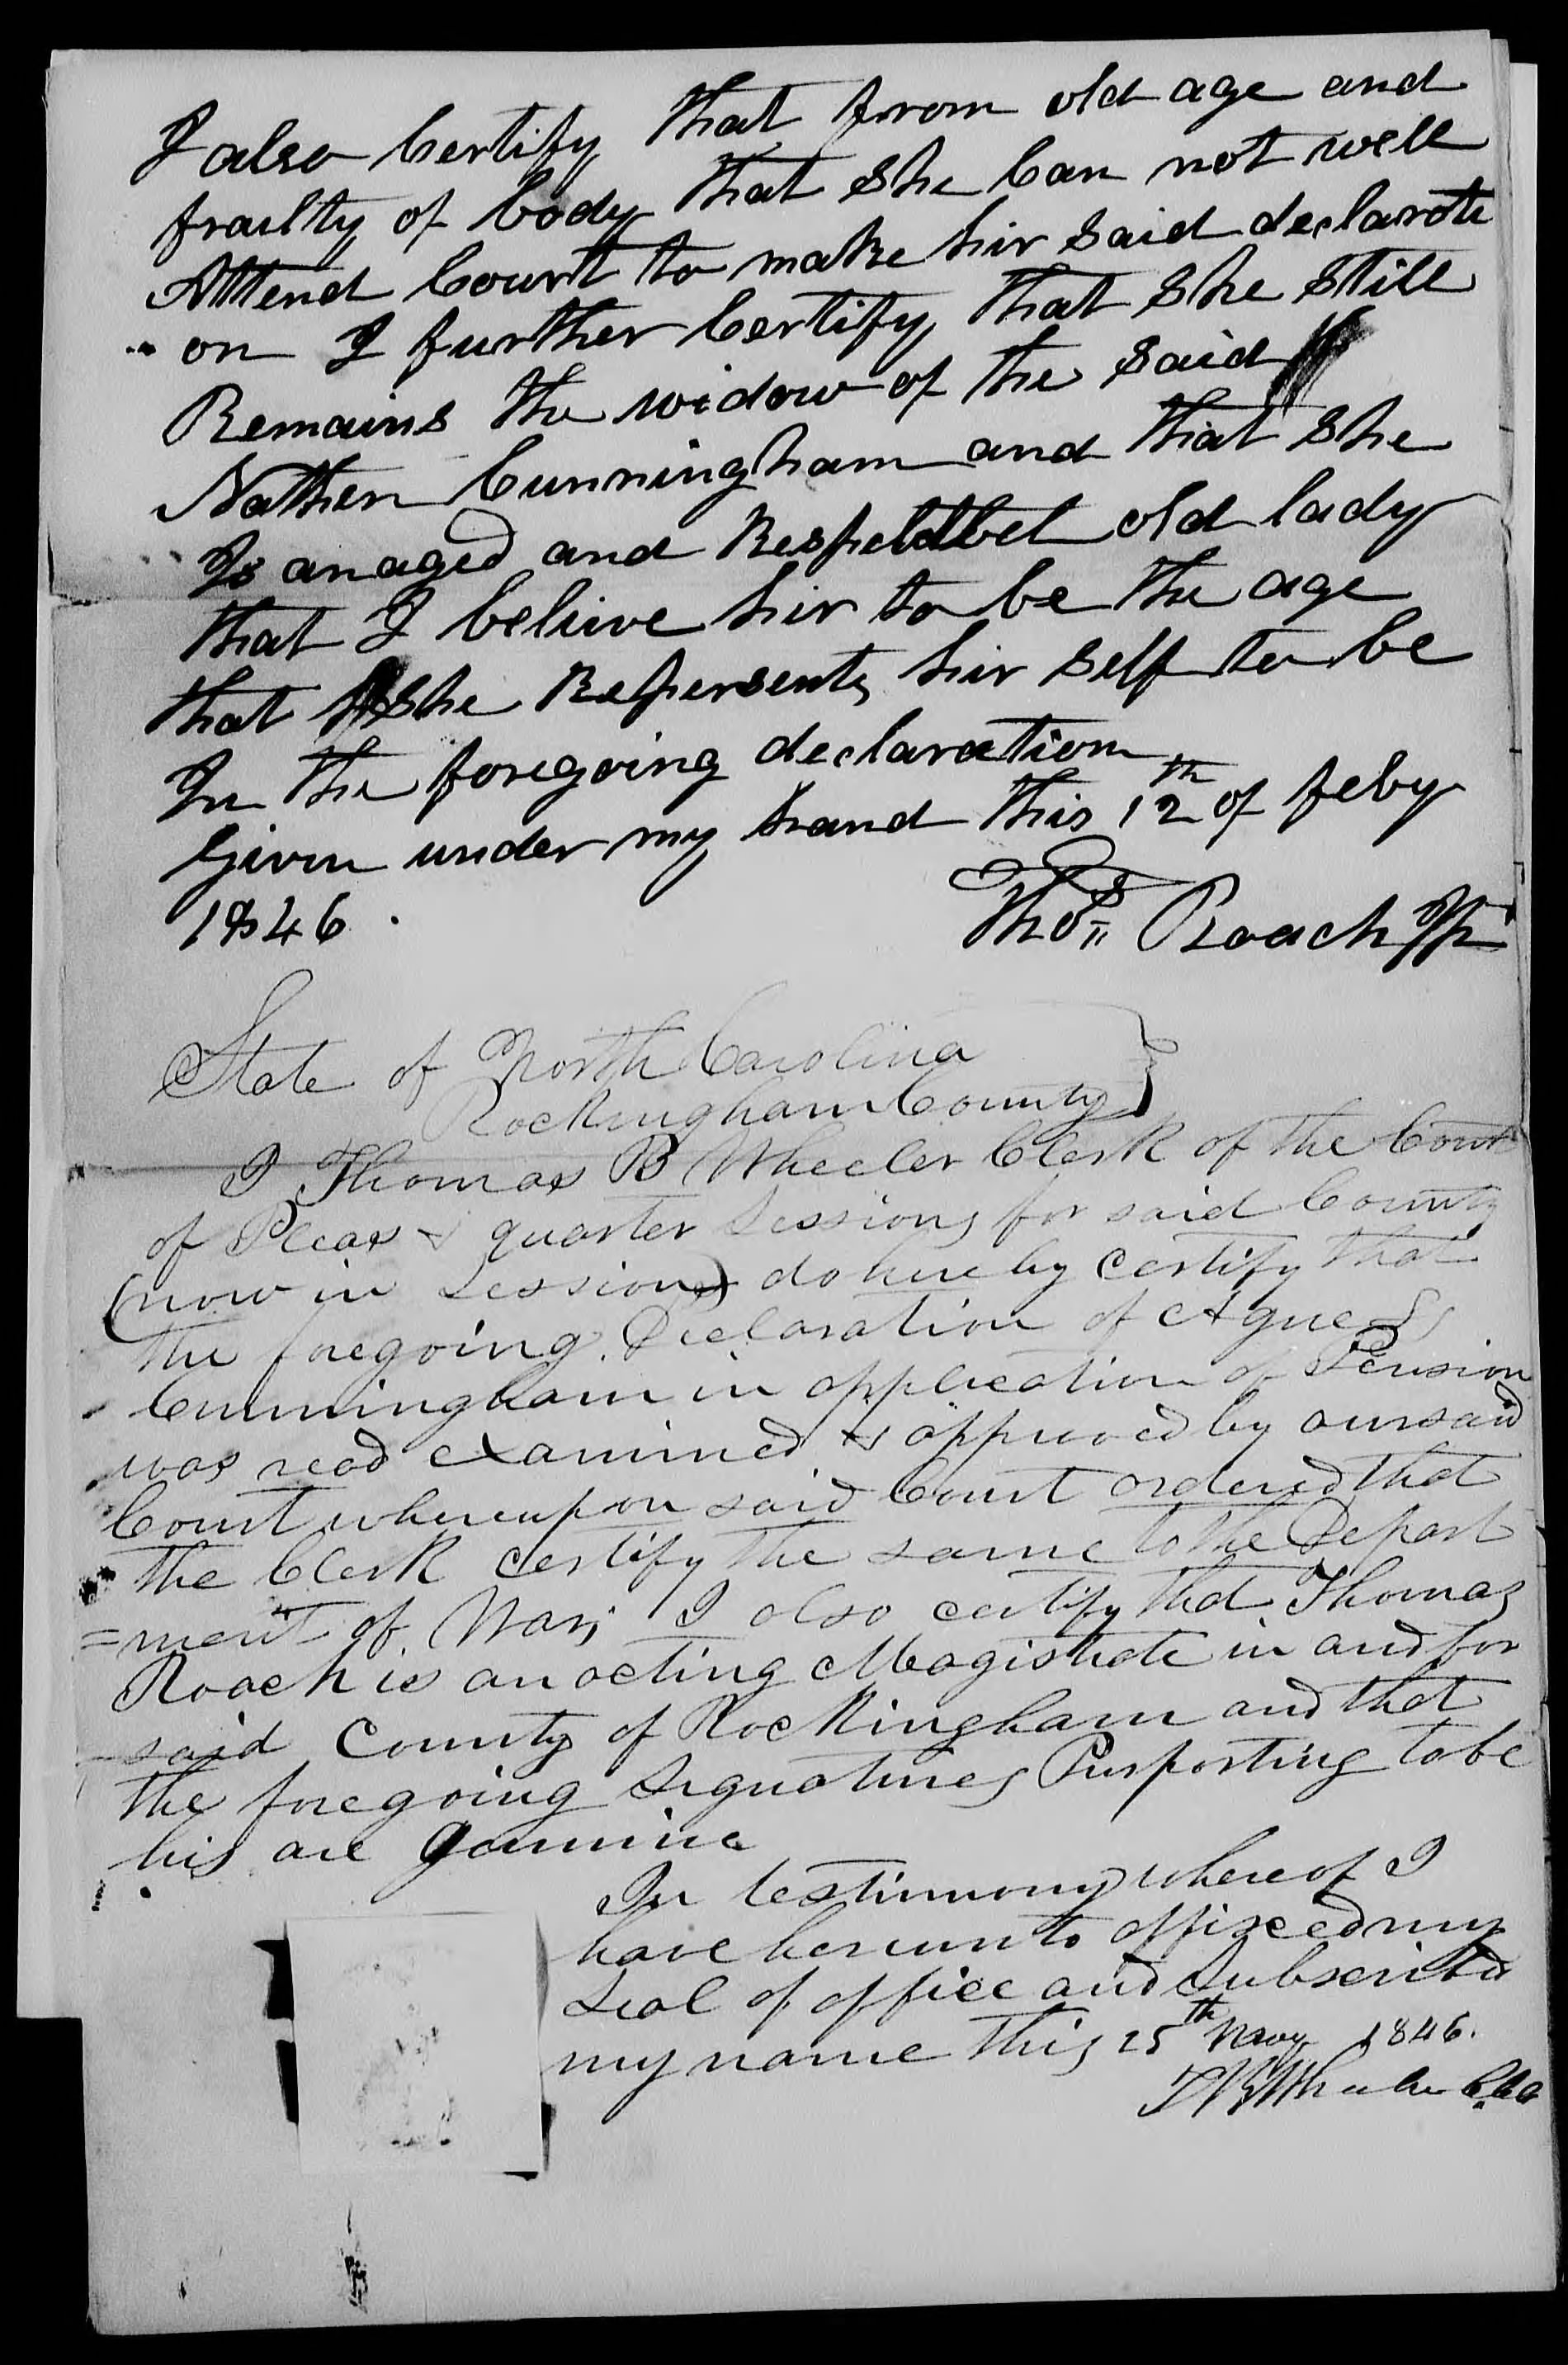 I also Certify that from old age and
frailty of body that She Can not well
Attend Court to make hir Said declarati
on I further Certify that She Still
Remains the widow of the Said
Nathen Cunningham and that She
Is anaged and Respeldbel old lady
that I belive hir to be the age
that She Repersents hir Self to be
In the foregoing declaration
Given under my hand this 12th of feby
1846.
Thos Roach JP
State of North Carolina
Rockingham County
I Thomas B Wheeler Clerk of the Court
of Pleas & quarter Sessions for said County
(now in Session) do hereby certify that
the foregoing Declaration of Agness
Cunningham in application of Pension
was read examined & approved by our said
Court whereupon said Court ordered that
the Clerk certify the same to the Depart
=ment of War; I also certify that Thomas
Roach is an acting Magistrate in and for
said County of Rockingham and that
the foregoing Signatures Purporting to be
his are Genuine
In testimony whereof I
have hereunto affixed my
Seal of office and Subscribd
my name this 25th 1846.
T B Wheeler